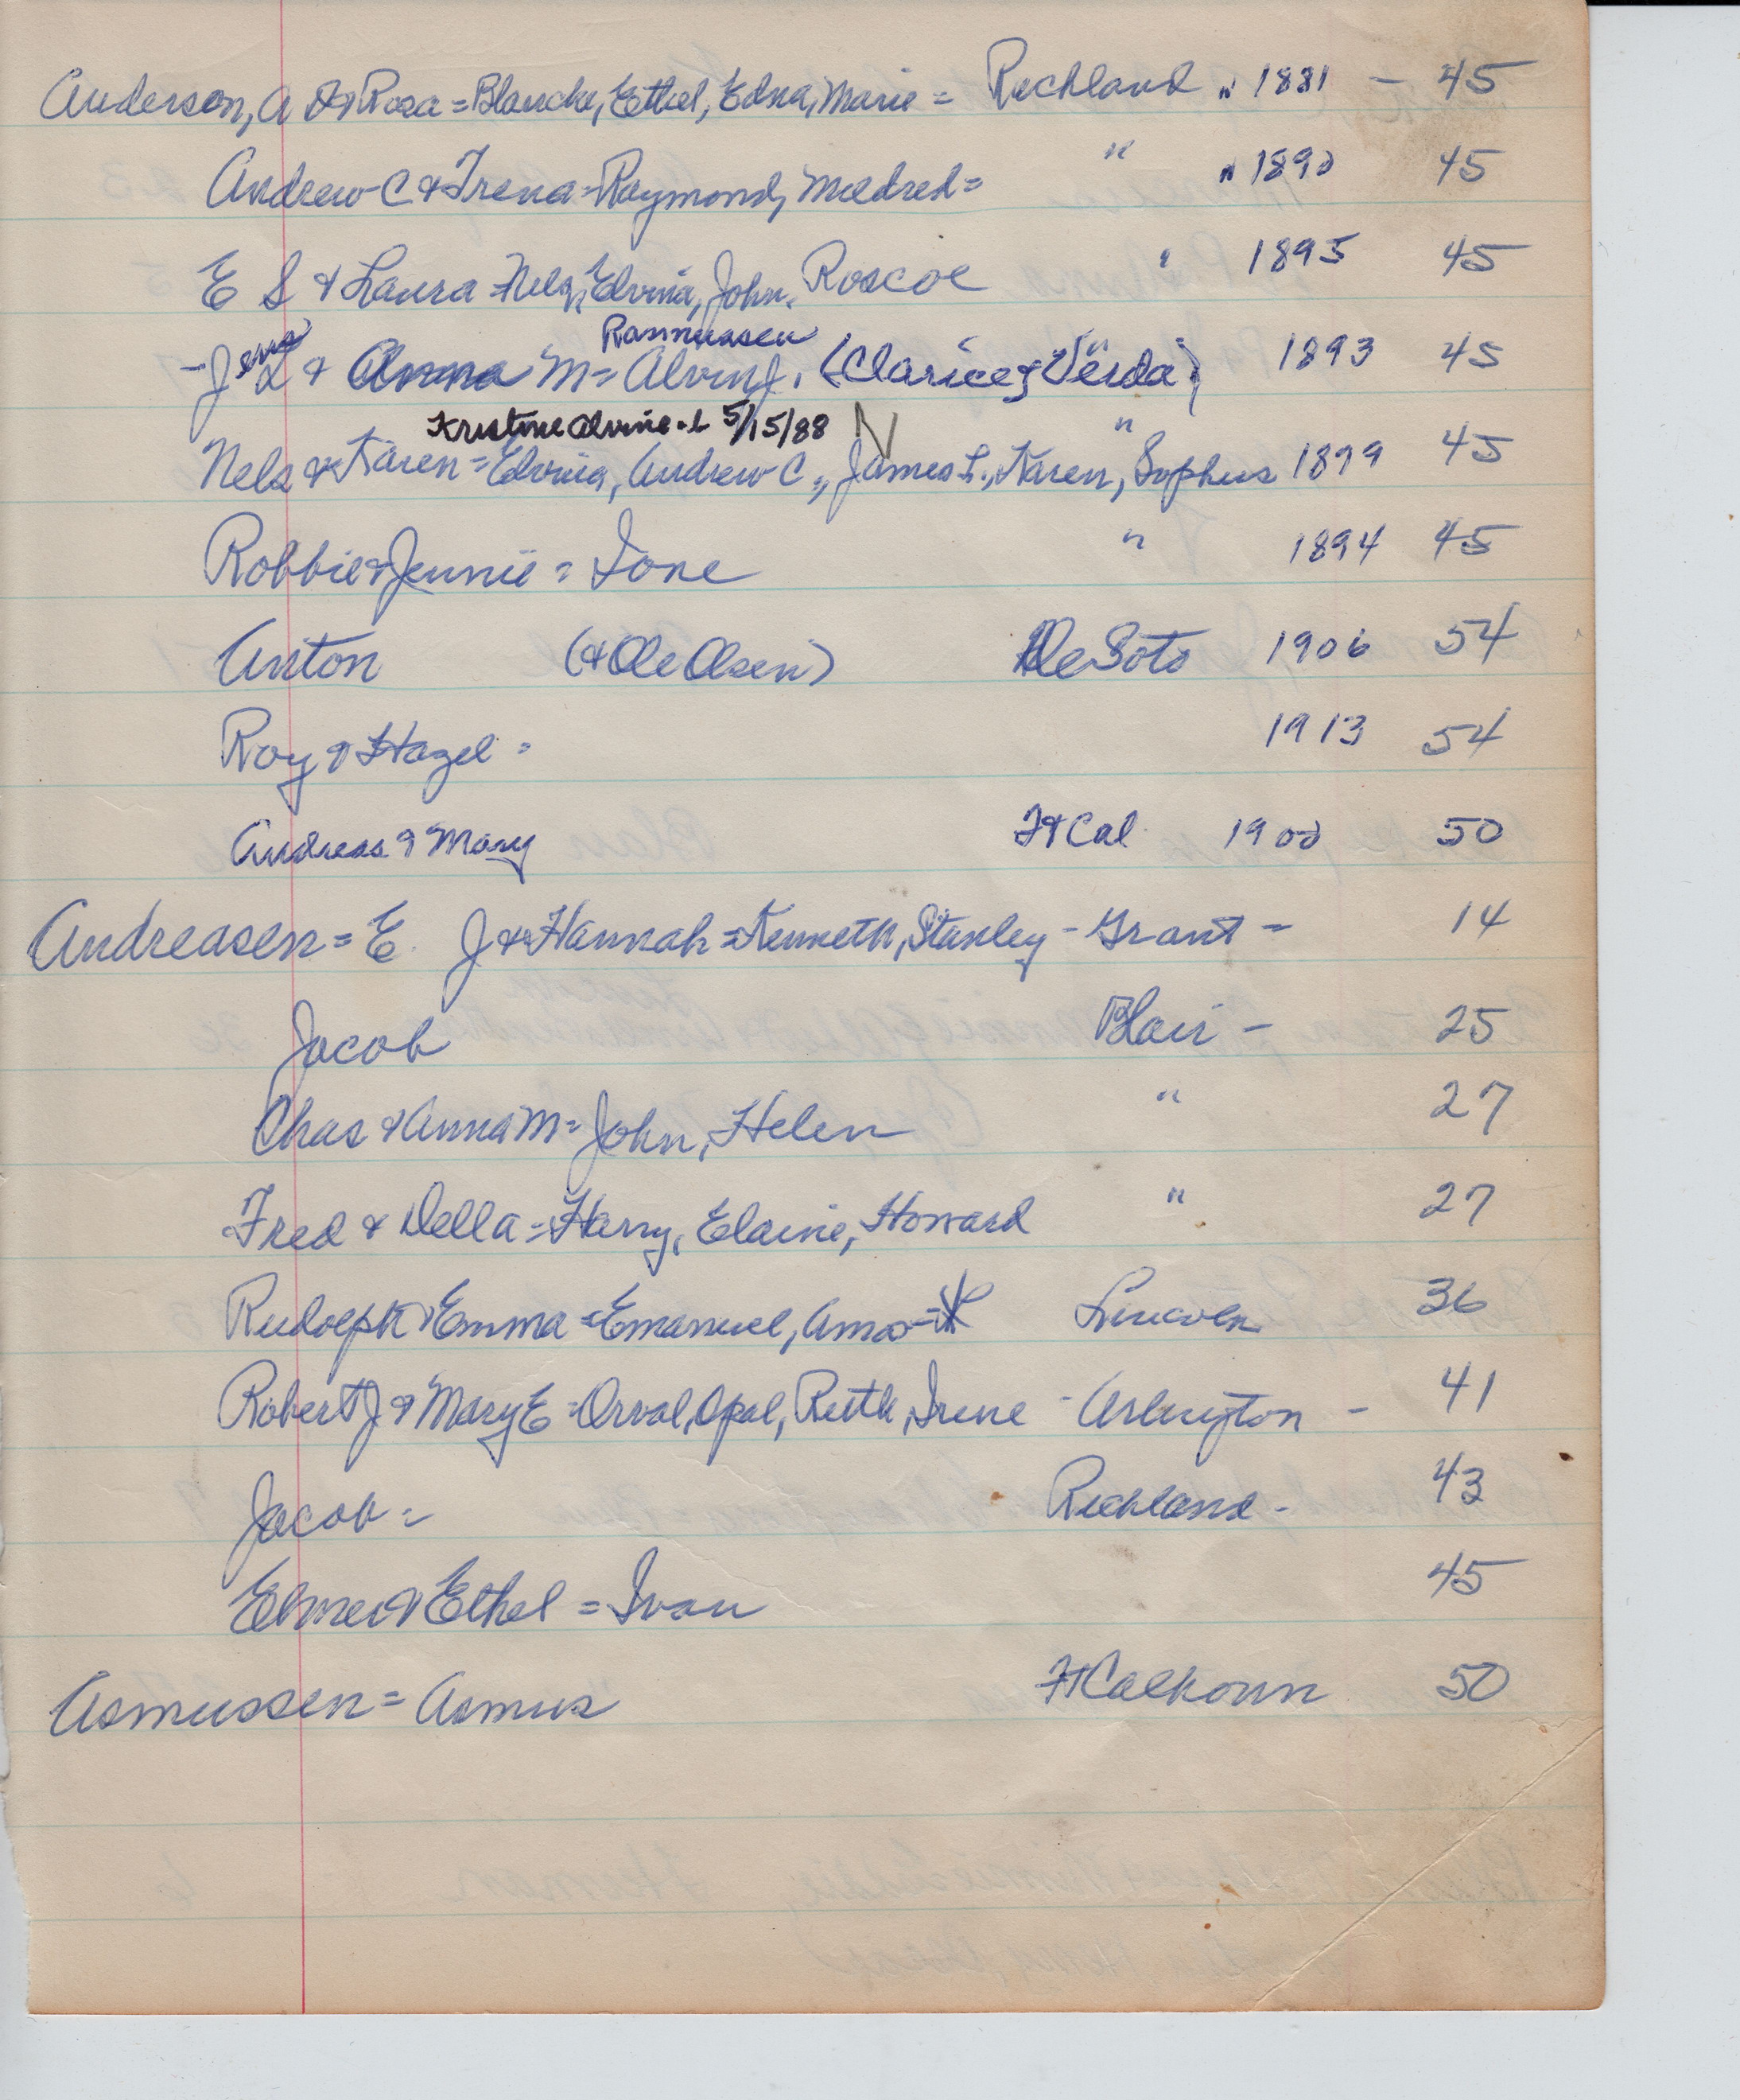 Anderson, A D & Rosa = Blanche, Ethel, Edna, Marie = Richland " 1881 - 45
Andrew C & Trena = Raymond, Mildred = " " 1890 45
E S & Laura = Nels, Elvina, John, Roscoe " 1895 45
Rasmussen
- Jens L & Anna M = Alvin J. (Clarice & Verda) 1893 45
Kristine Alvine - b 5/15/88 N
Nels & Karen = Edvina, Andrew C., James L., Karen, Sophus " 1879 45
Robbie & Jennie = Ione " 1894 45
Anton (& Ole Olsen) DeSoto 1906 54
Roy & Hazel = 1913 54
Andreas & Mary Ft Cal 1900 50
Andreasen = E. J & Hannah = Kenneth, Stanley - Grant - 14
Jacob Blair - 25
Chas & Anna M = John, Helen " 27
Fred & Della = Harry, Elaine, Howard " 27
Rudolph & Emma = Emanuel, Amos = Lincoln 36
Robert J & Mary E = Orval, Opal, Ruth, Irene - Arlington - 41
Jacob = Richland - 43
Elmer & Ethel = Ivan 45
Asmussen = Asmus Ft Calhoun 50